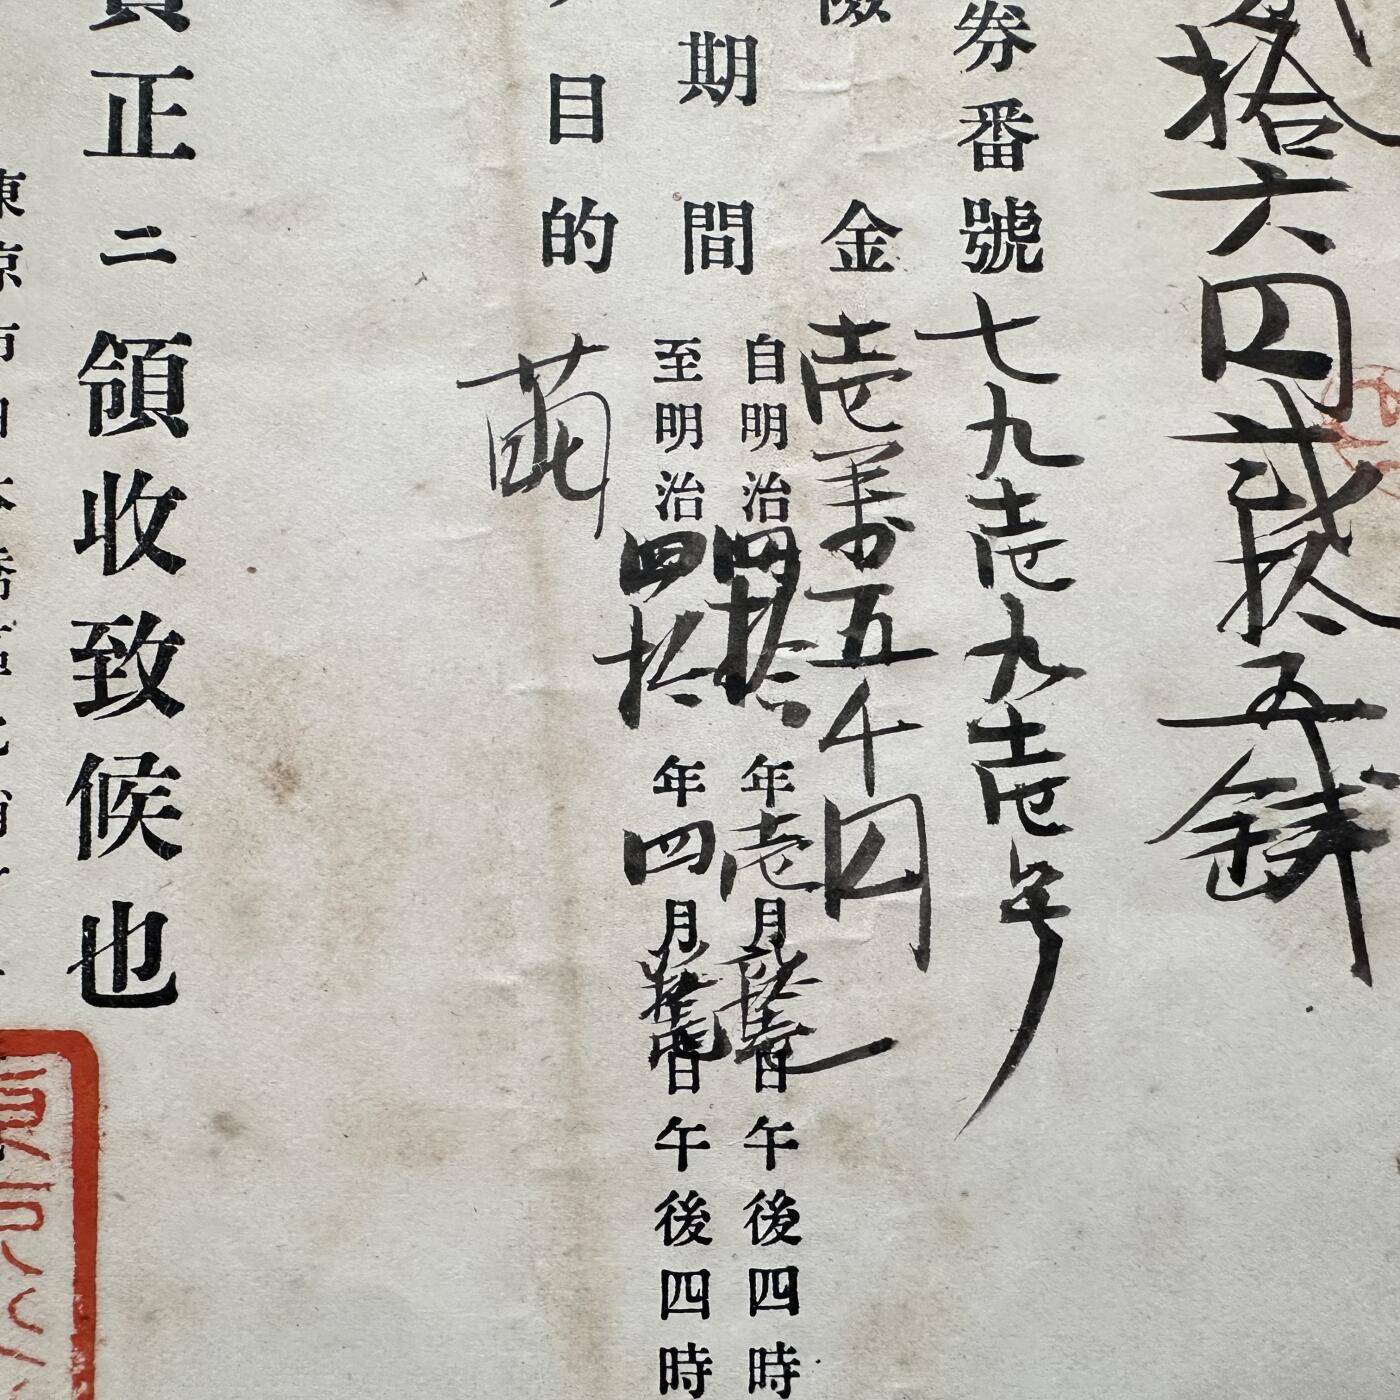 拾六円貳拾五銭
券番號 七九壱九九壱号
金 壱萬五千円
期間 自明治四拾年壱月拾壱日午後四時
至明治四拾年四月拾壱日午後四時
目的 繭
正ニ領收致候也
東京市日本橋區